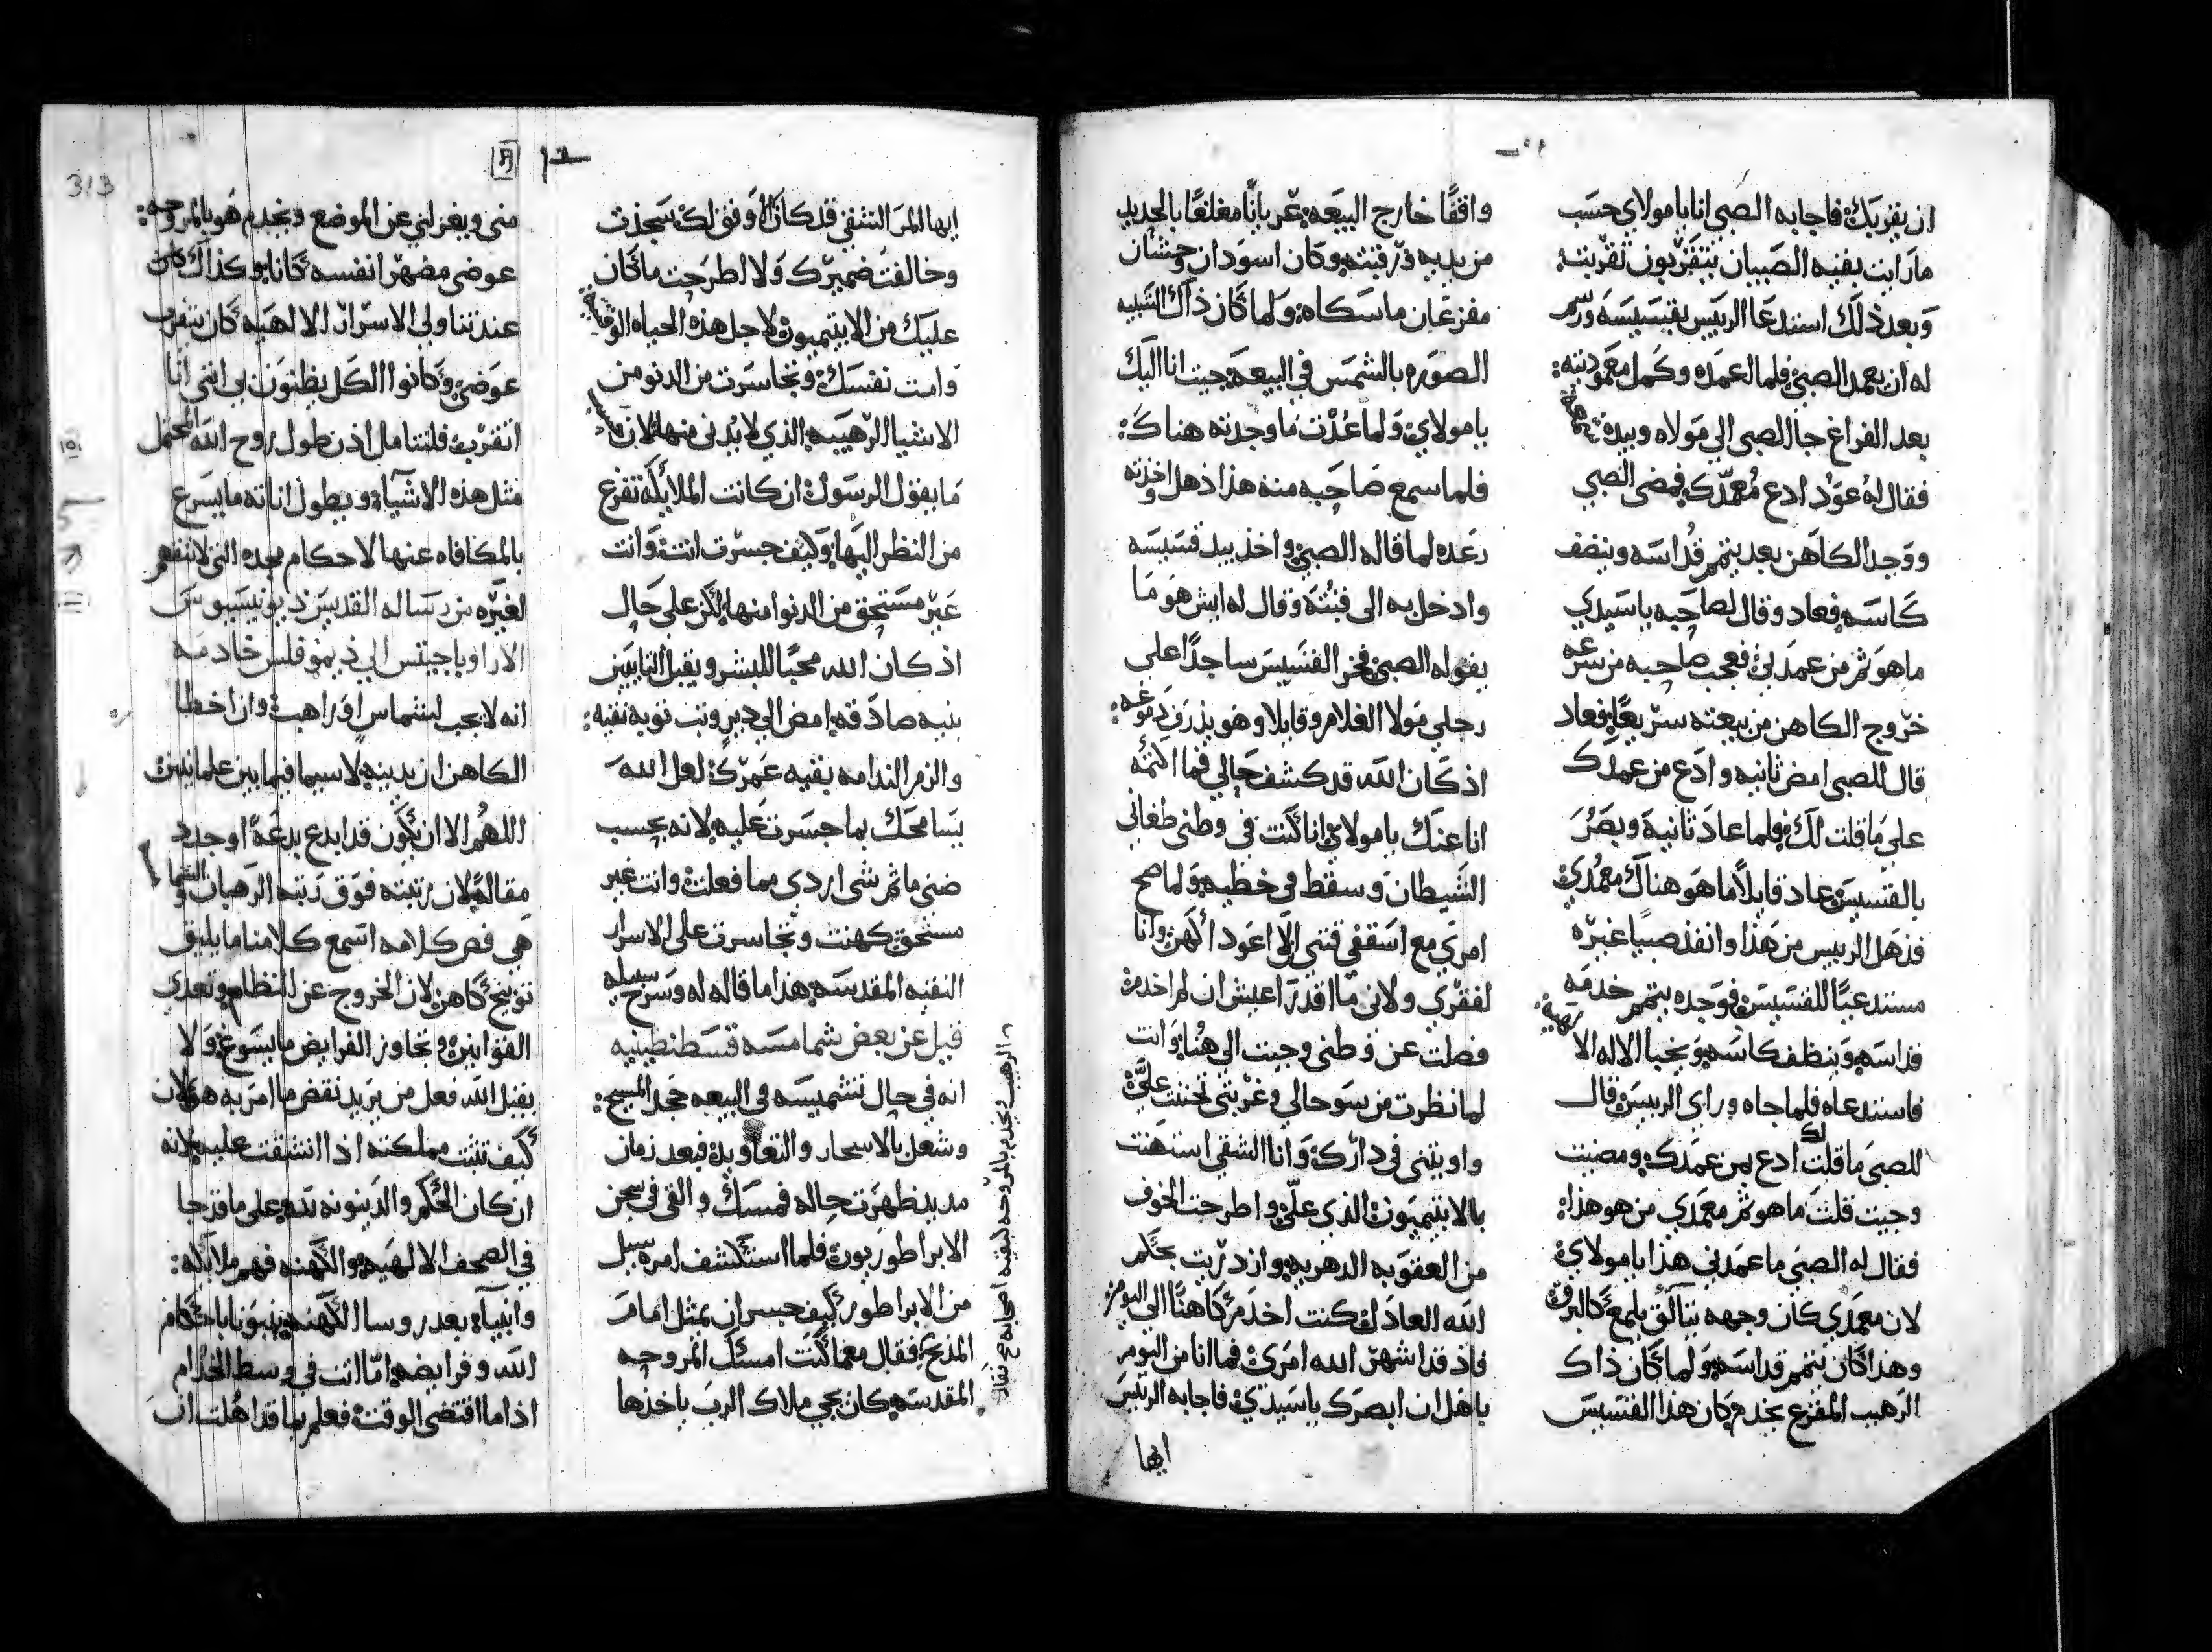 ان يقربك فاجابه الصبي انا يا مولاي حسب
ما رايت بقيه الصبيان يتقربون تقربت
وبعد ذلك استدعا الرييس بقسيسه ورسم
له ان يعمد الصبي فلما اعمده وكمل معموديته
بعد الفراغ جا الصبي الى مولاه وبيده
فقال له عود ادع معمدك فمضى الصبي
ووجد الكاهن بعد يتمم قداسه وينضف
كاسه فعاد وقال لصاحبه يا سيدي
ما هو ثم من عمدني فعجب صاحبه من سرعه
خروج الكاهن من بيعته سريعا فعاد
قال للصبي امض ثانيه وادع من عمدك
على ما قلت لك فلما عاد ثانية وبصر
بالقسيس عاد قايلا ما هو هناك معمدي
فذهل الرييس من هذا وانفذ صبيا غيره
مستدعيا للقسيس فوجده يتمم خدمه
قداسه وينظف كاسه ويخبا الاله الا
فاستدعاه فلما جاه وراي الرييس قال
للصبي ما قلت لك ادع من عمدك ومضيت
وجيت قلت ما هو ثم معمدي من هو هذا
فقال له الصبي ما عمدني هذا يا مولاي
لان معمدي كان وجهه يتالق يلمع كالبرق
وهذا كان يتمم قداسه ولما كان ذاك
الرهيب المفزع يخدم كان هذا القسيس
واقفا خارج البيعه عريانا مغلغا بالحديد
من يديه ورقبته وكان اسودان وحشان
مفزعان ماسكاه ولما كان ذاك الشبيه
الصوره بالشمس في البيعه جيت انا اليك
يا مولاي ولما عدت ما وجدته هناك
فلما سمع صاحبه منه هذا ذهل واخذته
رعده لما قاله الصبي واخذ بيد قسيسه
وادخل به الى قبته وقال له ايش هو ما
يقوله الصبي فخر القسيس ساجدا على
رجلي مولا الغلام وقايلا وهو يذرف دموعه
اذ كان الله قد كشف حالي فما اكتمه
انا عنك يا مولاي انا كنت في وطني طغاني
الشيطان وسقط في خطيه ولما صح
امري مع اسقفي قتني الا اعود اكهن وانا
لفقري ولاني ما اقدر اعيش ان لم اخدم
فصلت عن وطني وجيت الى هنا وانت
لما نظرت من سو حالي وغربتي تحننت علي
واويتني في دارك وانا الشقي استهنت
بالابتيميون الذي علي واطرحت الخوف
من العقوبه الدهريه وازدريت بحكم
الله العادل كنت اخدم كاهنا الى اليوم
فاذ قد اشهر الله امري فما انا من اليوم
باهل ان ابصرك يا سيدي فاجابه الرييس
ايها
ايها المر الشقي قد كان اوفق لك سجدت
وخالفت ضميرك ولا اطرحت ما كان
عليك من الابتيميون لاجل هذه الحياه الوقتيه
وامت نفسك وتجاسرت من الدنو من
الاشيا الرهيبه الذي لا يدنى منها لان
ما يقول الرسول ان كانت الملايكه تفزع
من النظر اليها وكيف جسرت انت وانت
غير مستحق من الدنوا منها لكن على حال
اذ كان الله محبا للبشر ويقبل التايبين
بنيه صادقه امض الى دير وتب توبه نقيه
والزم الندامه بقيه عمرك لعل الله
يسامحك بما جسرت عليه لانه بحسب
ضني ما ثم شي اردى مما فعلت وانت غير
مستحق كهنت وتجاسرت على الاسرار
النقيه المقدسه هذا ما قاله له وسرح سبيله
قيل عن بعض شمامسه قسطنطينيه
انه في حال تشميسه في البيعه جحد المسيح
وشعل بالاسحار والتعاويذ فبعد زمان
مديد ظهرت حاله فمسك والقي في سجن
الابراطوريون فلما استكشف امره سيل
من الابراطور كيف جسر ان يمثل امام
المذبح فقال معما كنت امسك المروحه
المقدسه كان يجي ملاك الرب ياخذها
الرهيب ويخدم بالمروحه لبقيه اصحابه
مني ويعزلني عن الموضع ويخدم هو بالمروحه
عوضي مضهرا نفسه كانا وكذاك كان
عند تناولي الاسرار الالهيه كان يتقرب
عوضي وكانوا الكل يظنون بي انني انا
اتقرب فلنتامل اذن طول روح الله المحتمل
مثل هذه الاشيا ويطول اناته ما يسرع
بالمكافاه عنها لاحكام مجده التي لا تفهم
لغيره من رساله القديس ذيونيسيوس
الاراوباجيتس الى ذيموفلس خادمه
انه لا يجب لشماس او راهب وان اخطا
الكاهن ان يدينه لا سيما فيما بين علمانيين
اللهم الا ان يكون قد ابدع بدعة او جدد
مقالة لان رتبته فوق رتبه الرهبان والشما
هي فص كلامه اسمع كلامنا ما يليق
توبيخ كاهن لان الخروج عن النظام وتعدي
القوانين وتجاوز الفرايض ما يسوغ ولا
يقبل الله فعل من يريد نقض ما امر به هو لان
كيف تثبت مملكته اذا انشقت عليه لانه
ان كان الحكم والدينونه لله على ما قد جا
في الصحف الالهيه والكهنه فهم ملايكه
وانبيا بعد روسا الكهنه ينبونا باحكام
الله وفرايضه اما انت في وسط الخدام
اذا ما اقتضى الوقت فعلم بما قد اهلت ان
313